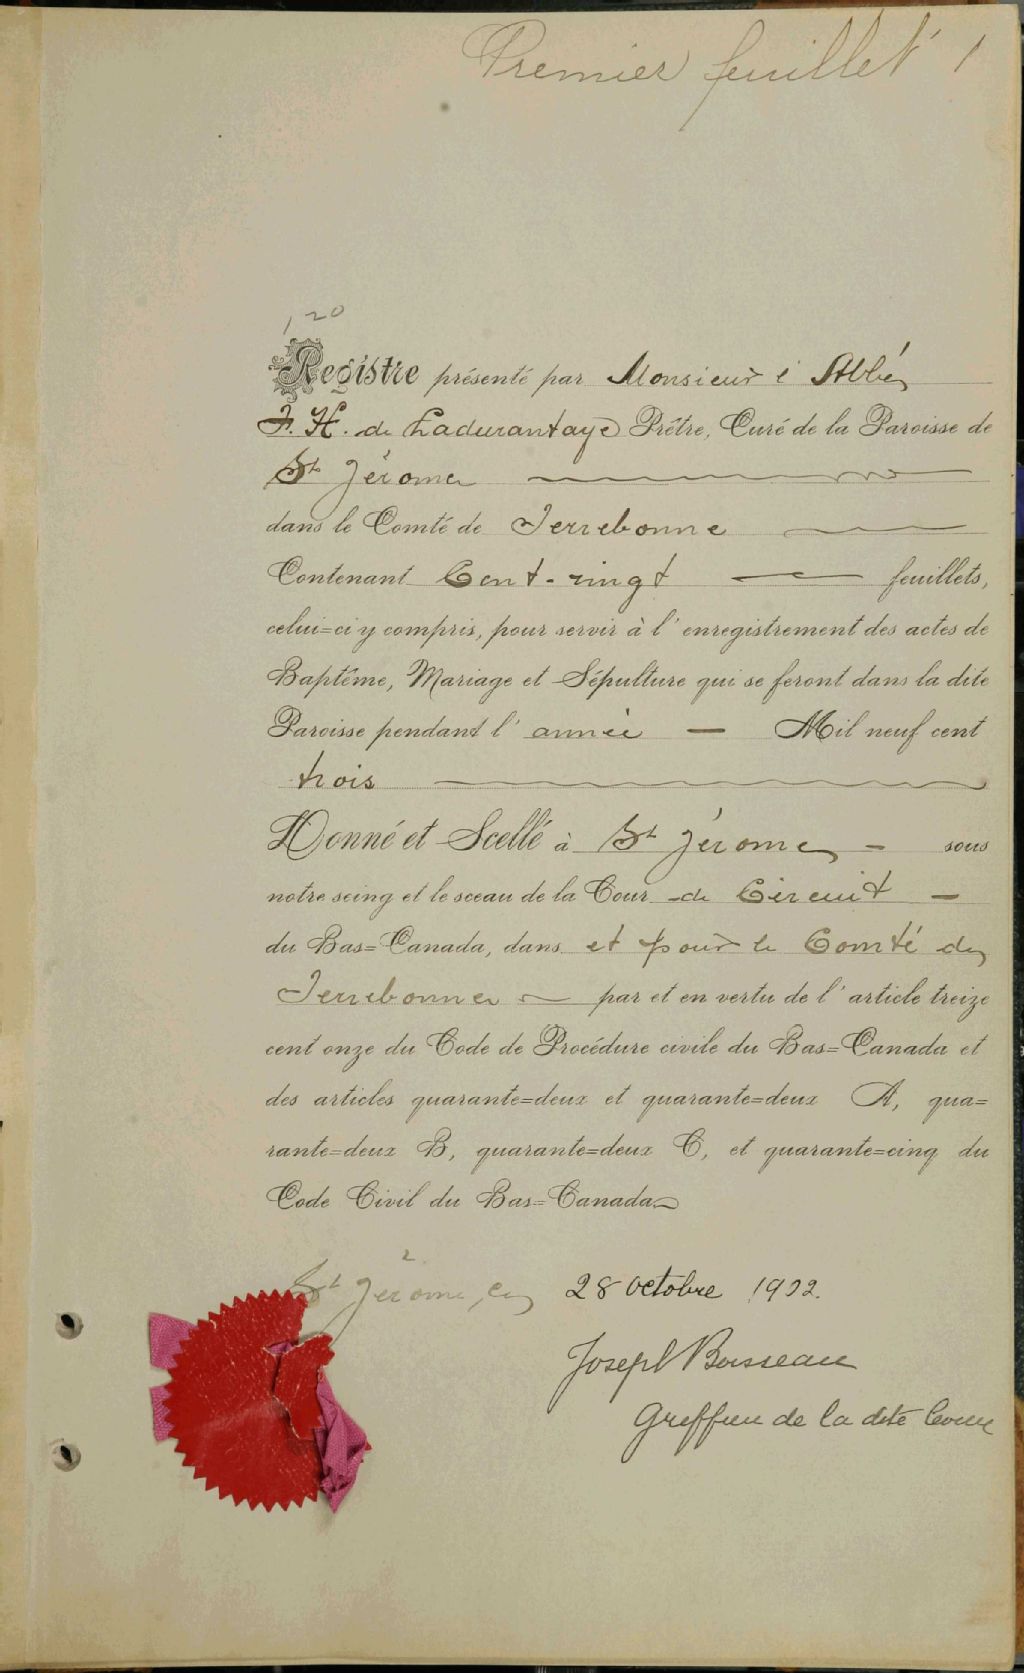 Premier feuillet 1
120
Registre présenté par Monsieur l'Abbé
J. H. de Ladurantaye Prêtre, Curé de la Paroisse de
St Jérome
dans le Comté de Terrebonne
Contenant Cent-vingt feuillets,
celui=ci y compris, pour servir à l'enregistrement des actes de
Baptême, Mariage et Sépulture qui se feront dans la dite
Paroisse pendant l'année — Mil neuf cent
trois
Donné et Scellé à St Jérome - sous
notre seing et le sceau de la Cour de Circuit —
du Bas=Canada, dans et pour le Comté de
Terrebonne — par et en vertu de l'article treize
cent onze du Code de Procédure civile du Bas=Canada et
des articles quarante=deux et quarante=deux A, qua=
rante=deux B, quarante=deux C, et quarante=cinq du
Code Civil du Bas=Canada
St Jérome, ce 28 octobre 1902.
Joseph Boisseau
Greffier de la dite Cour